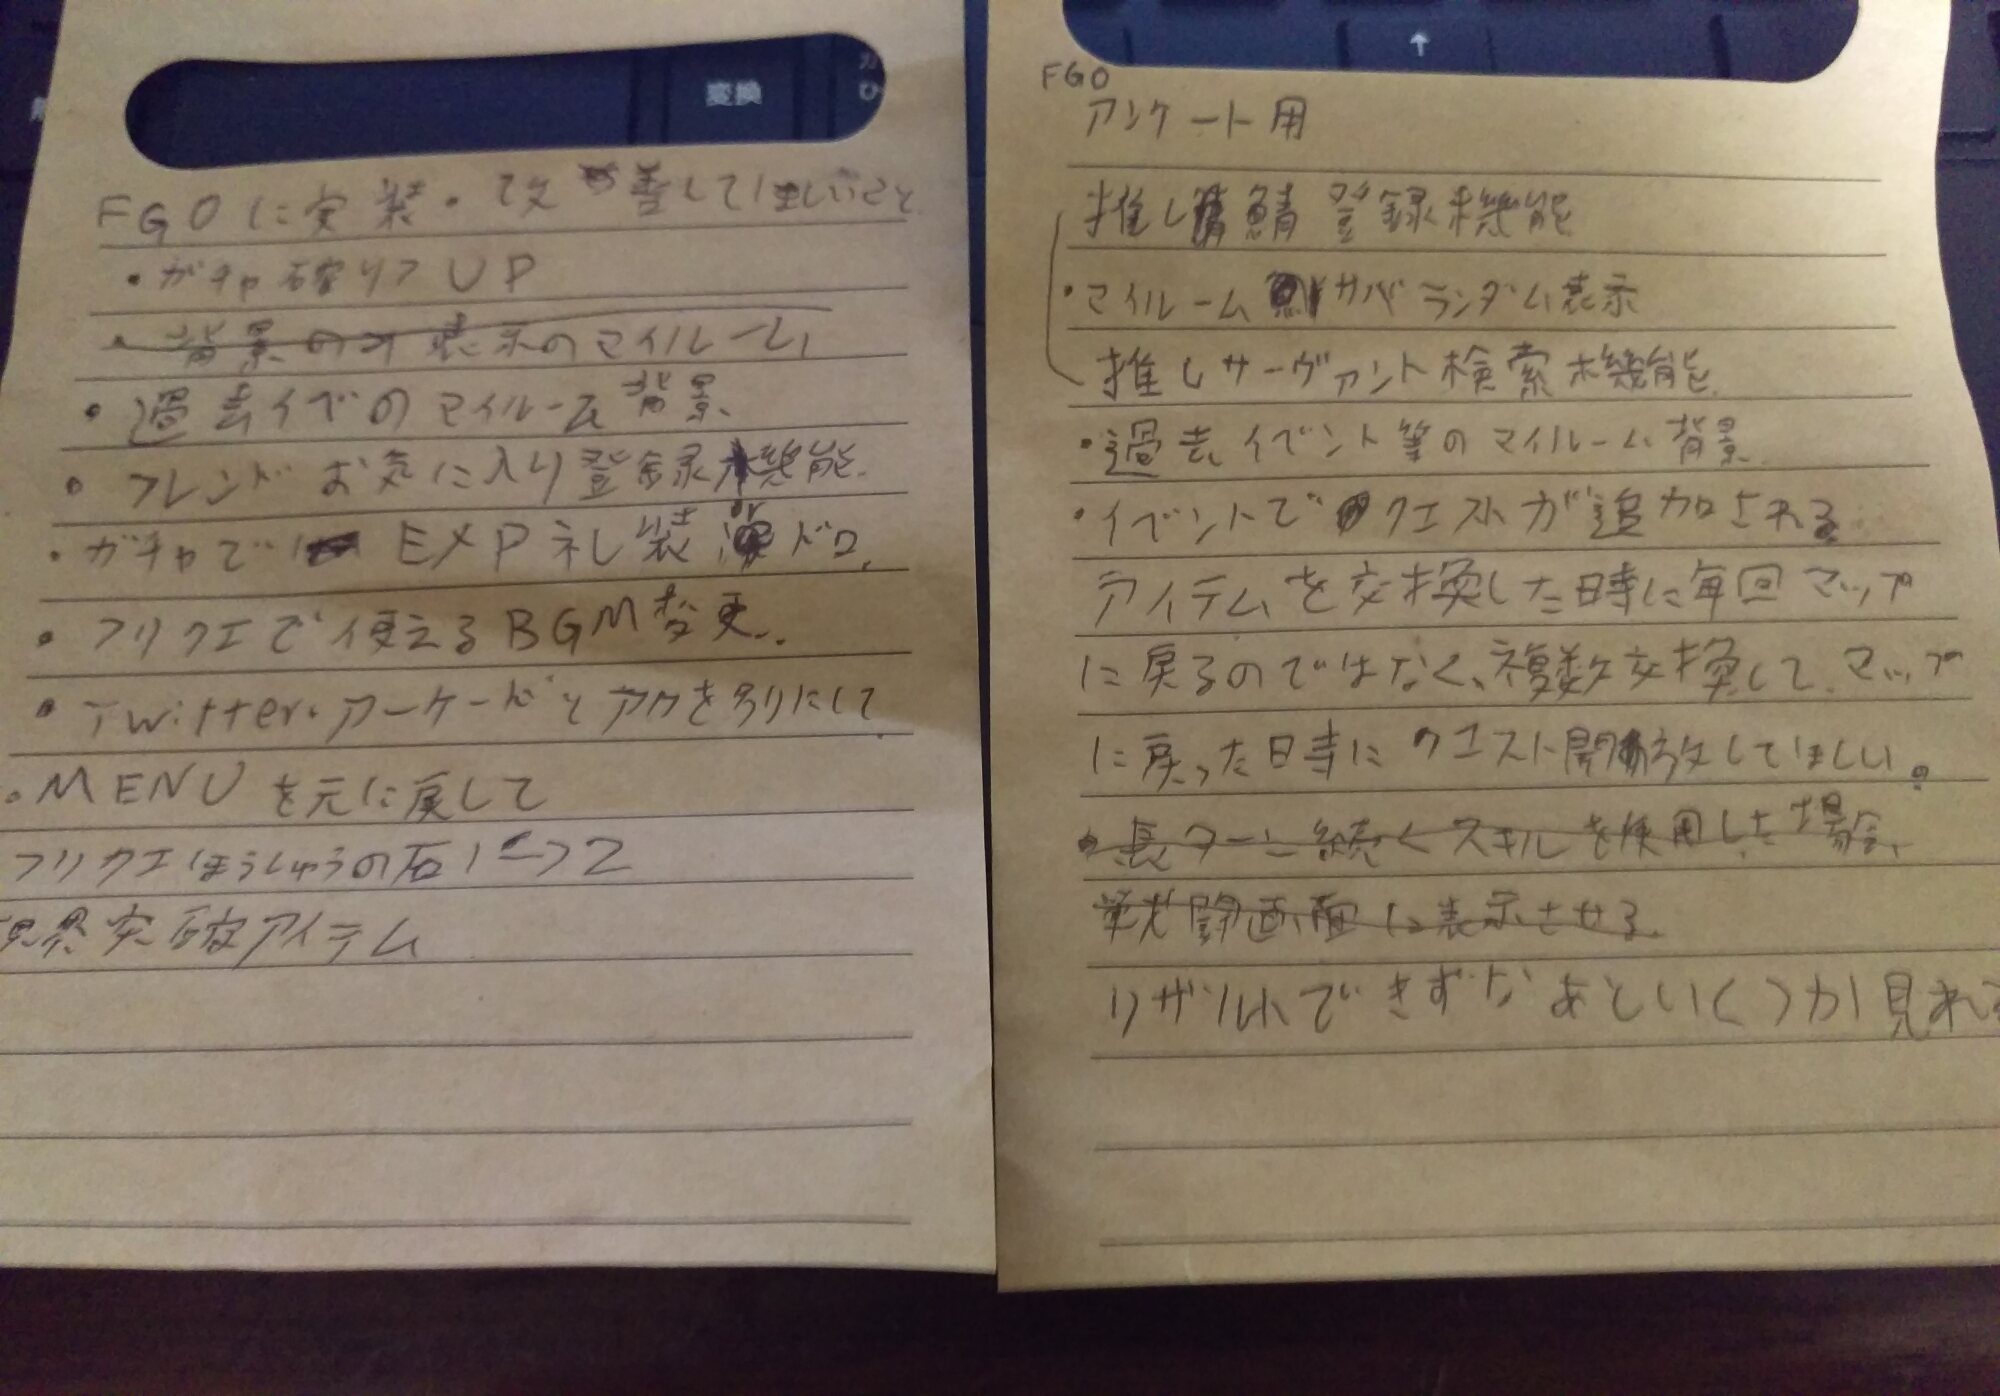 変換
FGOに実装・改善してほしいこと
・ガチャ確リツUP
・背景のみ表示のマイルーム
・過去イベのマイルーム背景
・フレンドお気に入り登録機能
・ガチャで EXP礼装 or ドロ
・フリクエで使えるBGM変更
・Twitter.アーケードとアカを別りにして
・MENUを元に戻して
フリクエほうしゅうの石1→2
限界突破アイテム
↑
FGO
アンケート用
推し鯖登録機能
・マイルーム サバランダム表示
推しサーヴァント検索機能
・過去イベント等のマイルーム背景
・イベントでクエストが追加される
アイテムを交換した時に毎回マップ
に戻るのではなく、複数交換してマップ
に戻った時にクエスト開放してほしい。
・長ターン続くスキルを使用した場合、
戦闘画面に表示させる
リザルトできずなあといくつか見れる